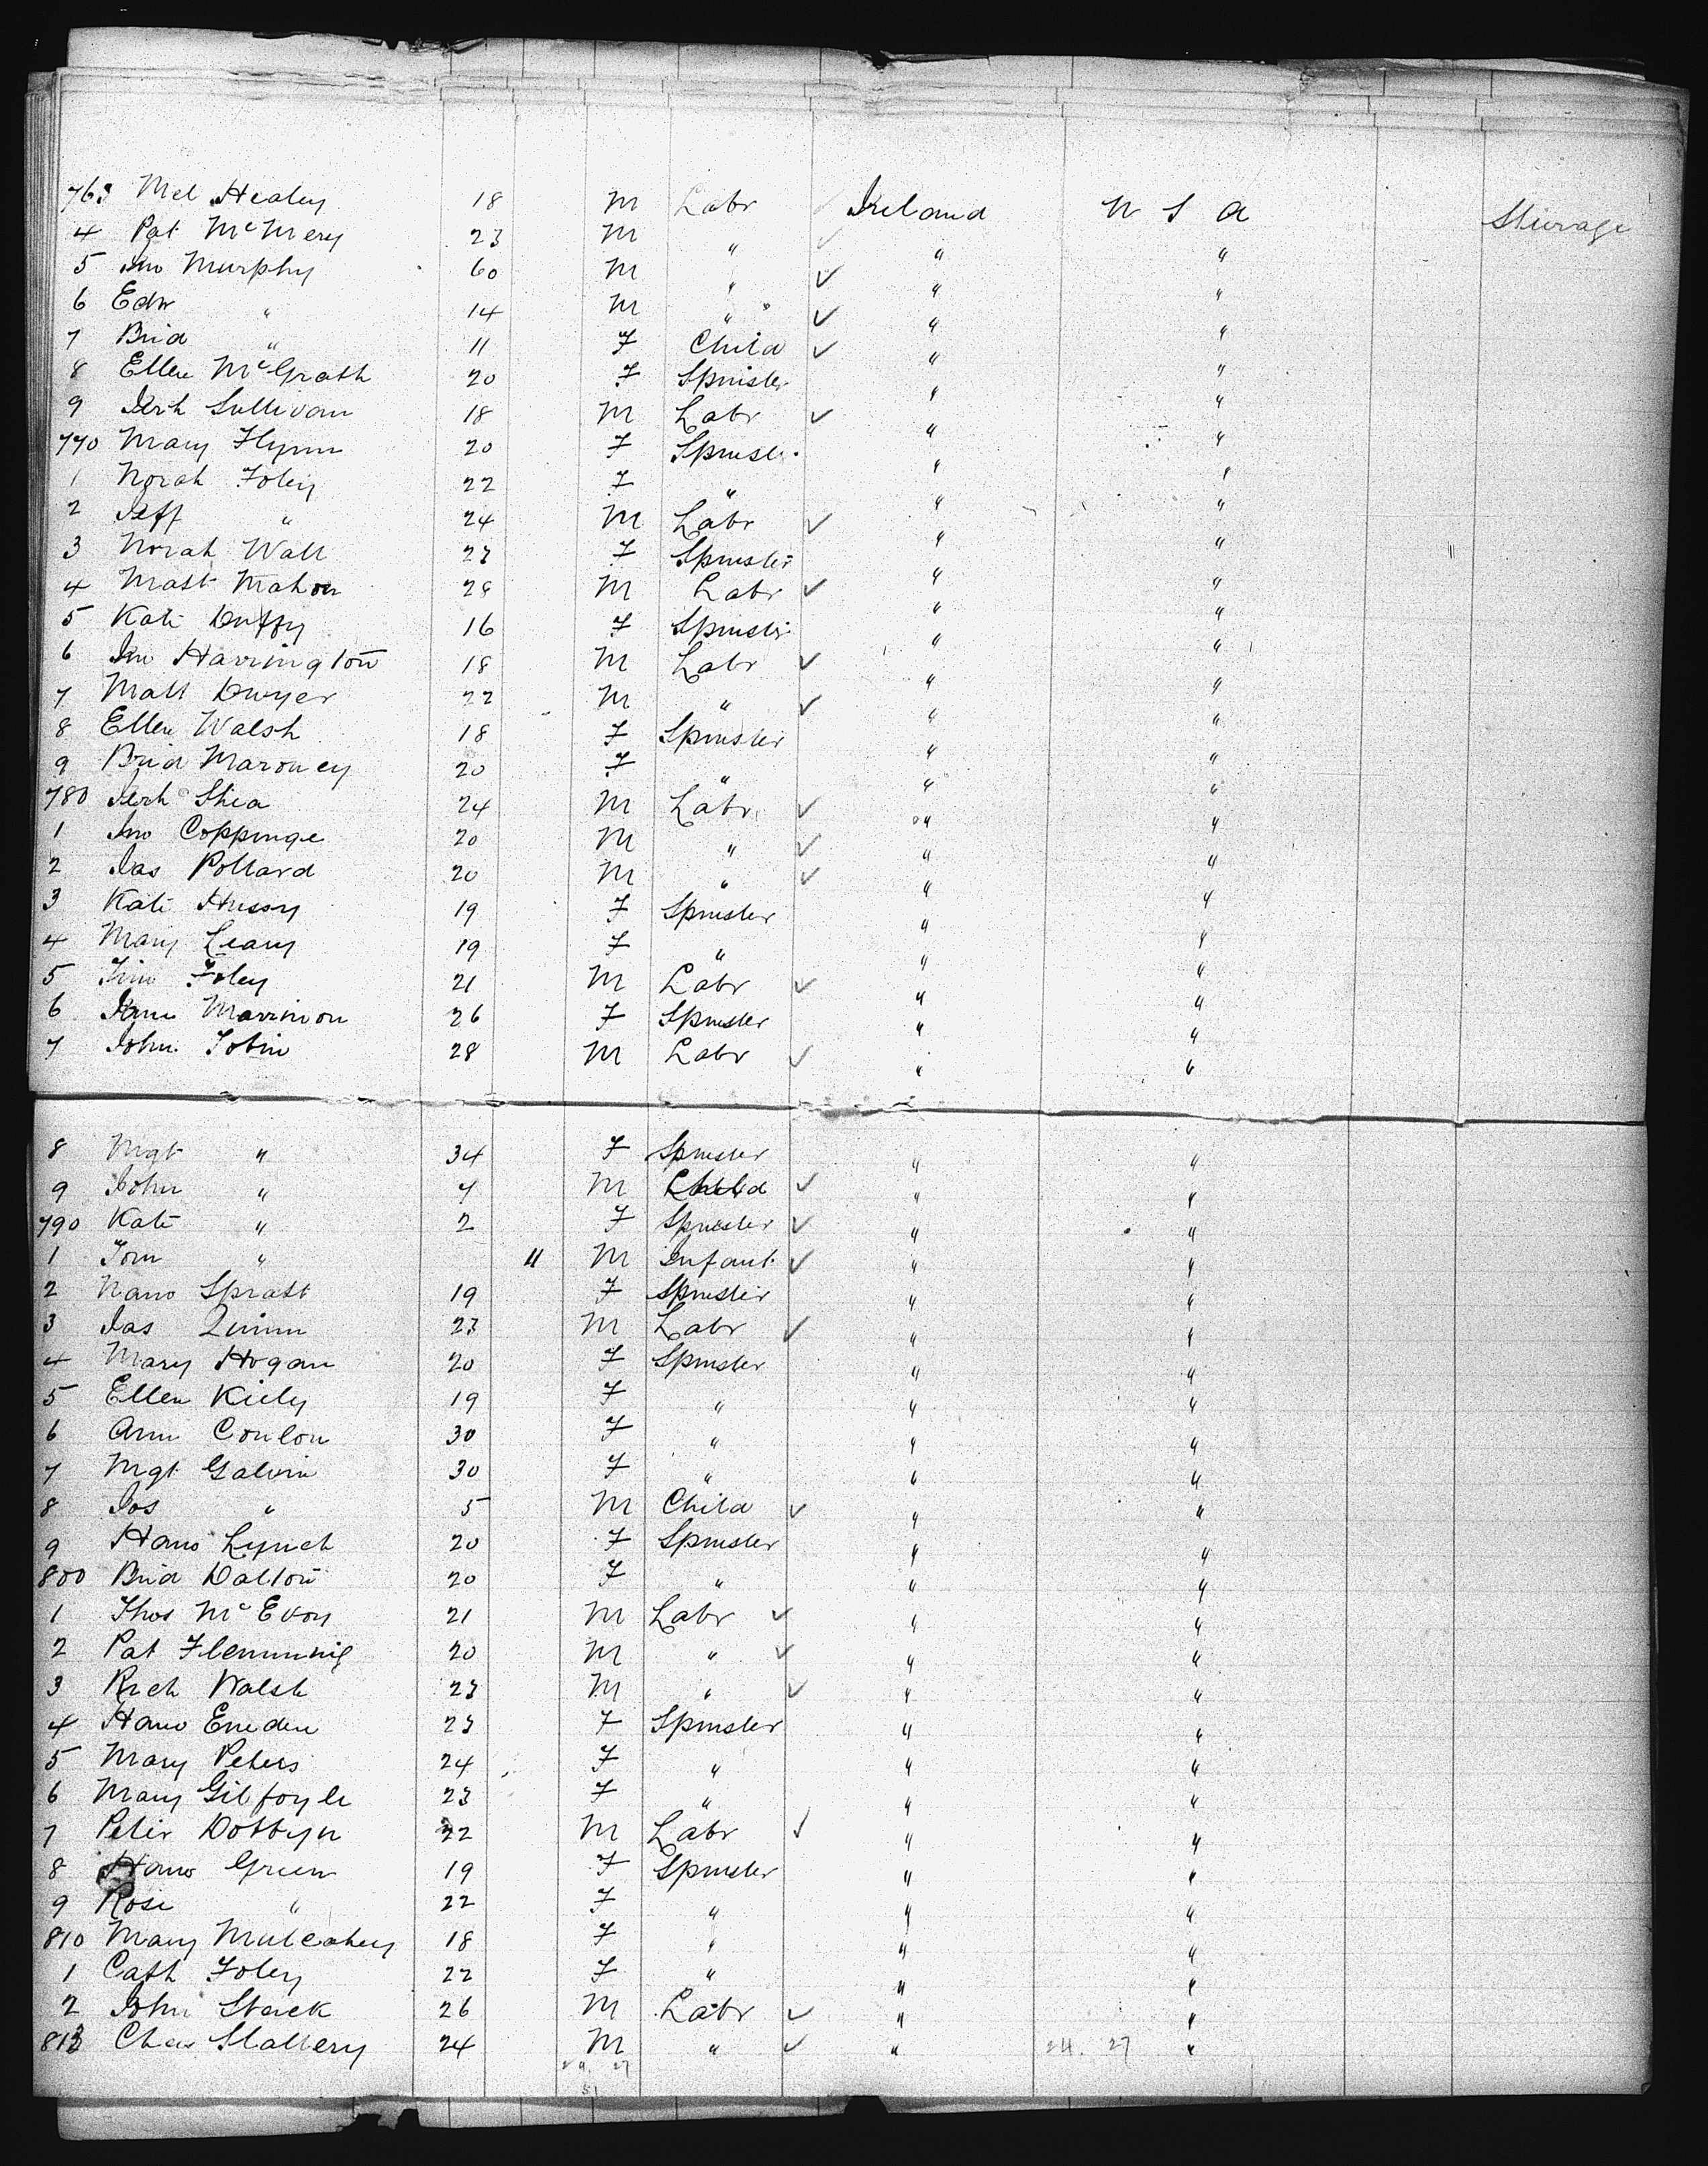 763 Mcl Healey 18 M Labr Ireland U S A Steerage
4 Pat McMery 23 M " " "
5 Jno Murphy 60 M " ✓ " "
6 Edw " 14 M " ✓ " "
7 Brid " 11 F Child ✓ " "
8 Ellen McGrath 20 F Spinster " "
9 Jerh Sullivan 18 M Labr ✓ " "
770 Mary Flynn 20 F Spinster " "
1 Norah Foley 22 F " " "
2 Jeff " 24 M Labr ✓ " "
3 Norah Wall 23 F Spinster " "
4 Matt Mahon 28 M Labr ✓ " "
5 Kate Duffy 16 F Spinster " "
6 Jno Harrington 18 M Labr ✓ " "
7 Matt Dwyer 22 M " ✓ " "
8 Ellen Walsh 18 F Spinster " "
9 Brid Maroney 20 F " " "
780 Jerh Shea 24 M Labr ✓ " "
1 Jno Coppinge 20 M " ✓ " "
2 Jas Pollard 20 M " ✓ " "
3 Kate Hussy 19 F Spinster " "
4 Mary Leary 19 F " " "
5 Jno Foley 21 M Labr ✓ " "
6 Jane Marrinon 26 F Spinster " "
7 John Tobin 28 M Labr ✓ " "
8 Mgt " 34 F Spinster " "
9 John " 7 M Child ✓ " "
790 Kate " 2 F Spinster ✓ " "
1 Tom " 11 M Infant ✓ " "
2 Nano Spratt 19 F Spinster " "
3 Jas Quinn 23 M Labr ✓ " "
4 Mary Hogan 20 F Spinster " "
5 Ellen Kiely 19 F " " "
6 Ann Conlon 30 F " " "
7 Mgt Galvin 30 F " " "
8 Jos " 5 M Child ✓ " "
9 Hano Lynch 20 F Spinster " "
800 Brid Dalton 20 F " " "
1 Thos McEvoy 21 M Labr ✓ " "
2 Pat Flemming 20 M " ✓ " "
3 Rich Walsh 23 M " ✓ " "
4 Hano Eneden 23 F Spinster " "
5 Mary Peters 24 F " " "
6 Mary Gilfoyle 23 F " " "
7 Peter Dobbyn 22 M Labr ✓ " "
8 Hano Green 19 F Spinster " "
9 Rose " 22 F " " "
810 Mary Mulcahey 18 F " " "
1 Cath Foley 22 F " " "
2 John Stack 26 M Labr ✓ " "
813 Chas Slattery 24 M " ✓ " 24. 27 "
24. 27
51